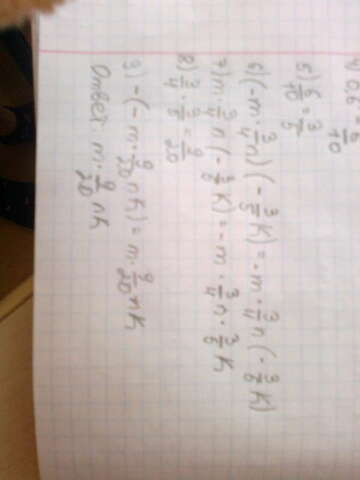 4) 0,6 = 6/10
5) 6/10 = 3/5
6) (-m · 3/4 n) (- 3/5 k) = -m · 3/4 n (- 3/5 k)
7) m · 3/4 n (- 3/5 k) = -m · 3/4 n · 3/5 k
8) 3/4 · 3/5 = 9/20
9) -(-m · 9/20 nk) = m · 9/20 nk
Ответ: m · 9/20 nk